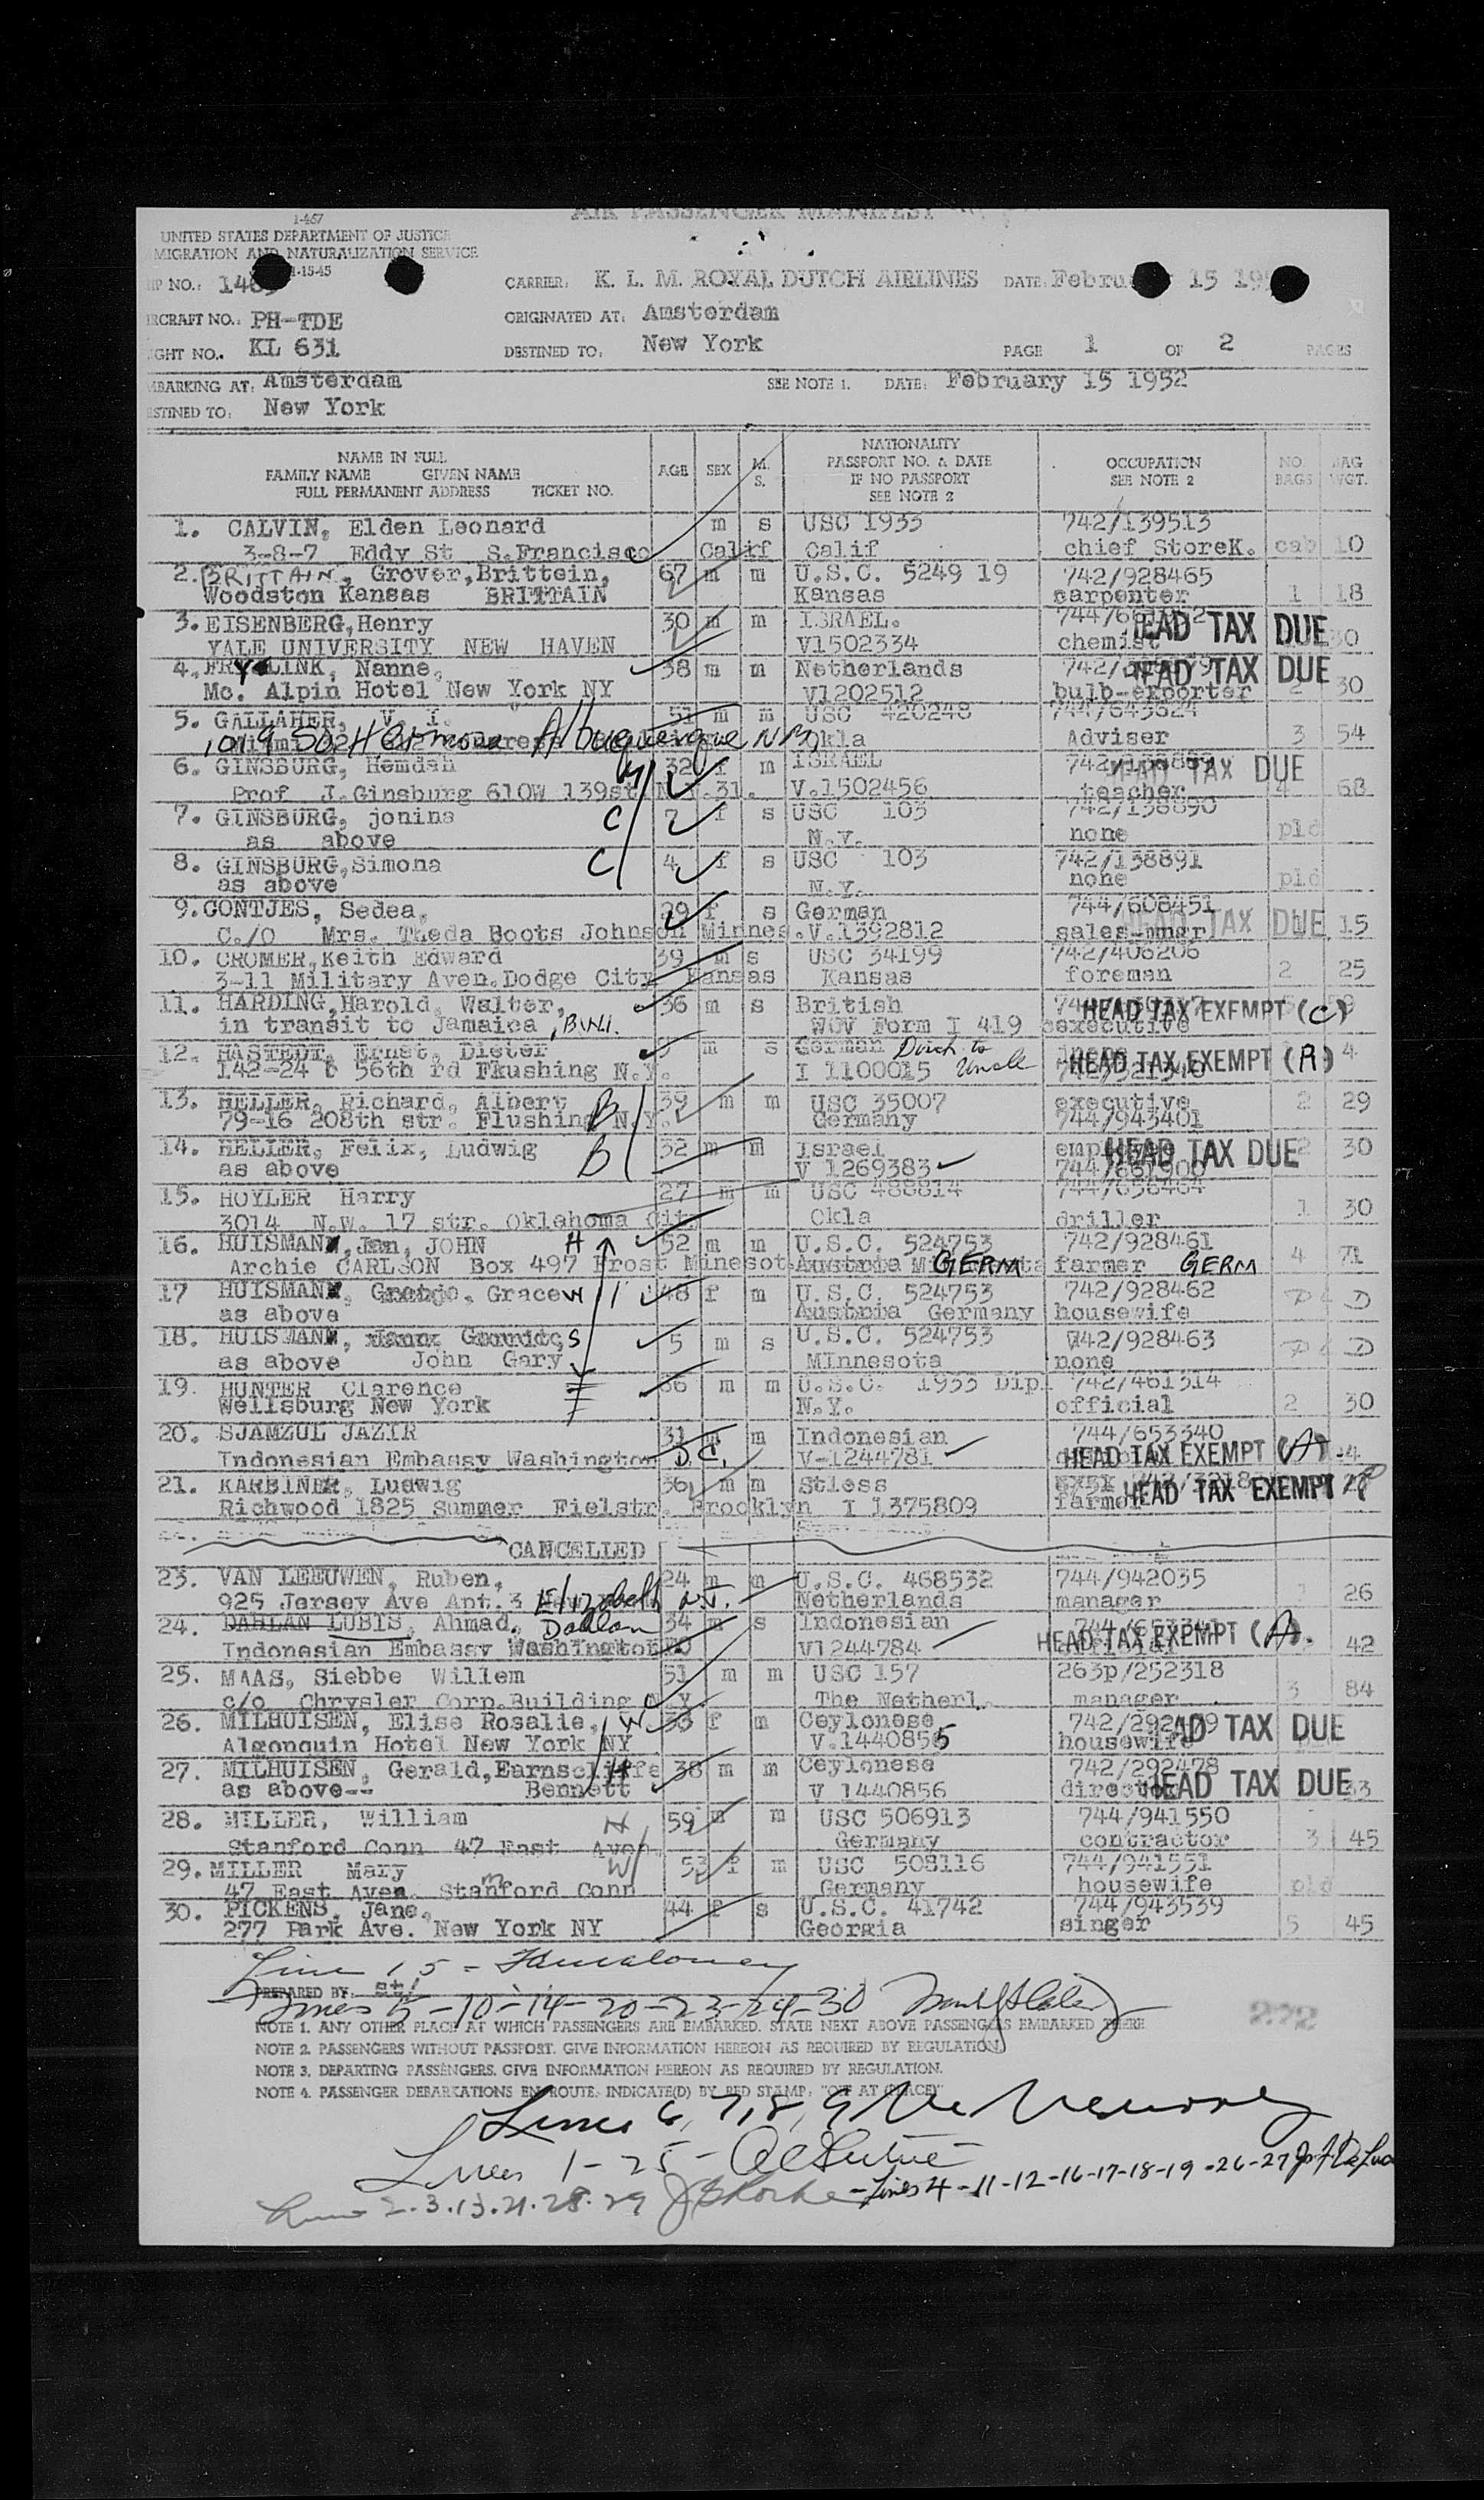 AIR PASSENGER MANIFEST
1-467
UNITED STATES DEPARTMENT OF JUSTICE
MIGRATION AND NATURALIZATION SERVICE
1-15-45
IP NO.: CARRIER: K. L. M. ROYAL DUTCH AIRLINES DATE: 15
RCRAFT NO.: PH-TDE ORIGINATED AT: Amsterdam
GHT NO.. KL 631 DESTINED TO: New York PAGE 1 OF 2 PAGES
MBARKING AT: Amsterdam SEE NOTE 1. DATE: February 15 1952
STINED TO: New York
NAME IN FULL
FAMILY NAME GIVEN NAME
FULL PERMANENT ADDRESS TICKET NO.
AGE SEX M. S.
NATIONALITY
PASSPORT NO. & DATE
IF NO PASSPORT
SEE NOTE 2
OCCUPATION
SEE NOTE 2
NO. BAGS
BAG WGT.
1. CALVIN, Elden Leonard m s USC 1933 742/139513
3-8-7 Eddy St S.Francisco Calif Calif chief StoreK. cab 10
2. BRITTAIN, Grover,Brittein, 67 m m U.S.C. 5249 19 742/928465
Woodston Kansas BRITTAIN Kansas carpenter 1 18
3. EISENBERG,Henry 30 m m ISRAEL. HEAD TAX DUE
YALE UNIVERSITY NEW HAVEN V1502334 chemist 30
4. FRYLINK, Nanne, 38 m m Netherlands HEAD TAX DUE
Mc. Alpin Hotel New York NY V1202512 bulb-exporter 2 30
5. GALLAHER, V. I. 51 m m USC 420248 744/643624
1019 So Hermosa Albuquerque, NM Okla Adviser 3 54
6. GINSBURG, Hemdah 32 f m ISRAEL HEAD TAX DUE
Prof J.Ginsburg 610W 139st N.Y.31. V.1502456 teacher 4 68
7. GINSBURG, jonina C 7 f s USC 103 742/138890
as above N.Y. none pld
8. GINSBURG,Simona C 4 f s USC 103 742/138891
as above N.Y. none pld
9. GONTJES, Sedea, 29 f s German 744/608451
C./O Mrs. Theda Boots Johnson Minnes.V.1392812 HEAD TAX DUE 15
10. CROMER,Keith Edward 39 m s USC 34199 742/406206
3-11 Military Aven.Dodge City Kansas Kansas foreman 2 25
11. HARDING,Harold Walter, 36 m s British HEAD TAX EXEMPT (C)
in transit to Jamaica, B.W.I. WOV Form I 419 executive
12. HASTEDT, Ernst, Dieter m s German HEAD TAX EXEMPT (A) 4
142-24 b 56th rd Fkushing N.Y. I 1100015 Uncle
13. HELLER, Richard, Albert B 39 m m USC 35007 executive 2 29
79-16 208th str. Flushing N.Y. Germany 744/943401
14. HELLER, Felix, Ludwig B 32 m m Israel HEAD TAX DUE 2 30
as above V 1269383
15. HOYLER Harry 27 m m USC 488814 744/656464
3014 N.W. 17 str. Oklahoma City Okla driller 1 30
16. HUISMAN, Jan, JOHN H 52 m m U.S.C. 524753 742/928461
Archie CARLSON Box 497 Frost Minesot Austria GERM farmer GERM 4 71
17 HUISMAN, Grace W 48 f m U.S.C. 524753 742/928462
as above Austria Germany housewife
18. HUISMAN, S 5 m s U.S.C. 524753 742/928463
as above John Gary MInnesota none
19. HUNTER Clarence 36 m m U.S.C. 1933 Dipl 742/461314
Wellsburg New York N.Y. official 2 30
20. SJAMZUL JAZIR 31 m m Indonesian 744/653340
Indonesian Embassy Washington D.C. V-1244781 HEAD TAX EXEMPT (A)
21. KARBINER, Ludwig 36 m m Stless
Richwood 1825 Summer Fielstr. Brooklyn I 1375809 farmer HEAD TAX EXEMPT
CANCELLED
23. VAN LEEUWEN, Ruben, 24 m m U.S.C. 468532 744/942035
925 Jersey Ave Ant. 3 Elizabeth N.J. Netherlands manager 1 26
24. DAHLAN LUBIS, Ahmad, Dahlan 34 m s Indonesian
Indonesian Embassy Washington V1244784 HEAD TAX EXEMPT (A). 42
25. MAAS, Siebbe Willem 51 m m USC 157 263p/252318
c/o Chrysler Corp.Building N.Y. The Netherl. manager 3 84
26. MILHUISEN, Elise Rosalie, W 33 f m Ceylonese HEAD TAX DUE
Algonquin Hotel New York NY V.1440855 housewife
27. MILHUISEN, Gerald,Earnscliffe H 38 m m Ceylonese 742/292478
as above-- Bennett V 1440856 director HEAD TAX DUE 33
28. MILLER, William H 59 m m USC 506913 744/941550
Stanford Conn 47 East Aven Germany contractor 3 45
29. MILLER Mary W 53 f m USC 508116 744/941551
47 East Aven. Stamford Conn Germany housewife pld
30. PICKENS, Jane, 44 f s U.S.C. 41742 744/943539
277 Park Ave. New York NY Georgia singer 5 45
Line 15 -
PREPARED BY: st/
Lines 5-10-14-20-23-24-30
NOTE 1. ANY OTHER PLACE AT WHICH PASSENGERS ARE EMBARKED. STATE NEXT ABOVE PASSENGERS EMBARKED THERE
NOTE 2. PASSENGERS WITHOUT PASSPORT. GIVE INFORMATION HEREON AS REQUIRED BY REGULATION
NOTE 3. DEPARTING PASSENGERS. GIVE INFORMATION HEREON AS REQUIRED BY REGULATION.
NOTE 4. PASSENGER DEBARKATIONS EN ROUTE. INDICATE(D) BY RED STAMP: "OFF AT (PLACE)"
272
Lines 6, 7, 8, 9
Lines 1-25-
Lines 4-11-12-16-17-18-19-26-27
Lines 2.3.13.21.28.29